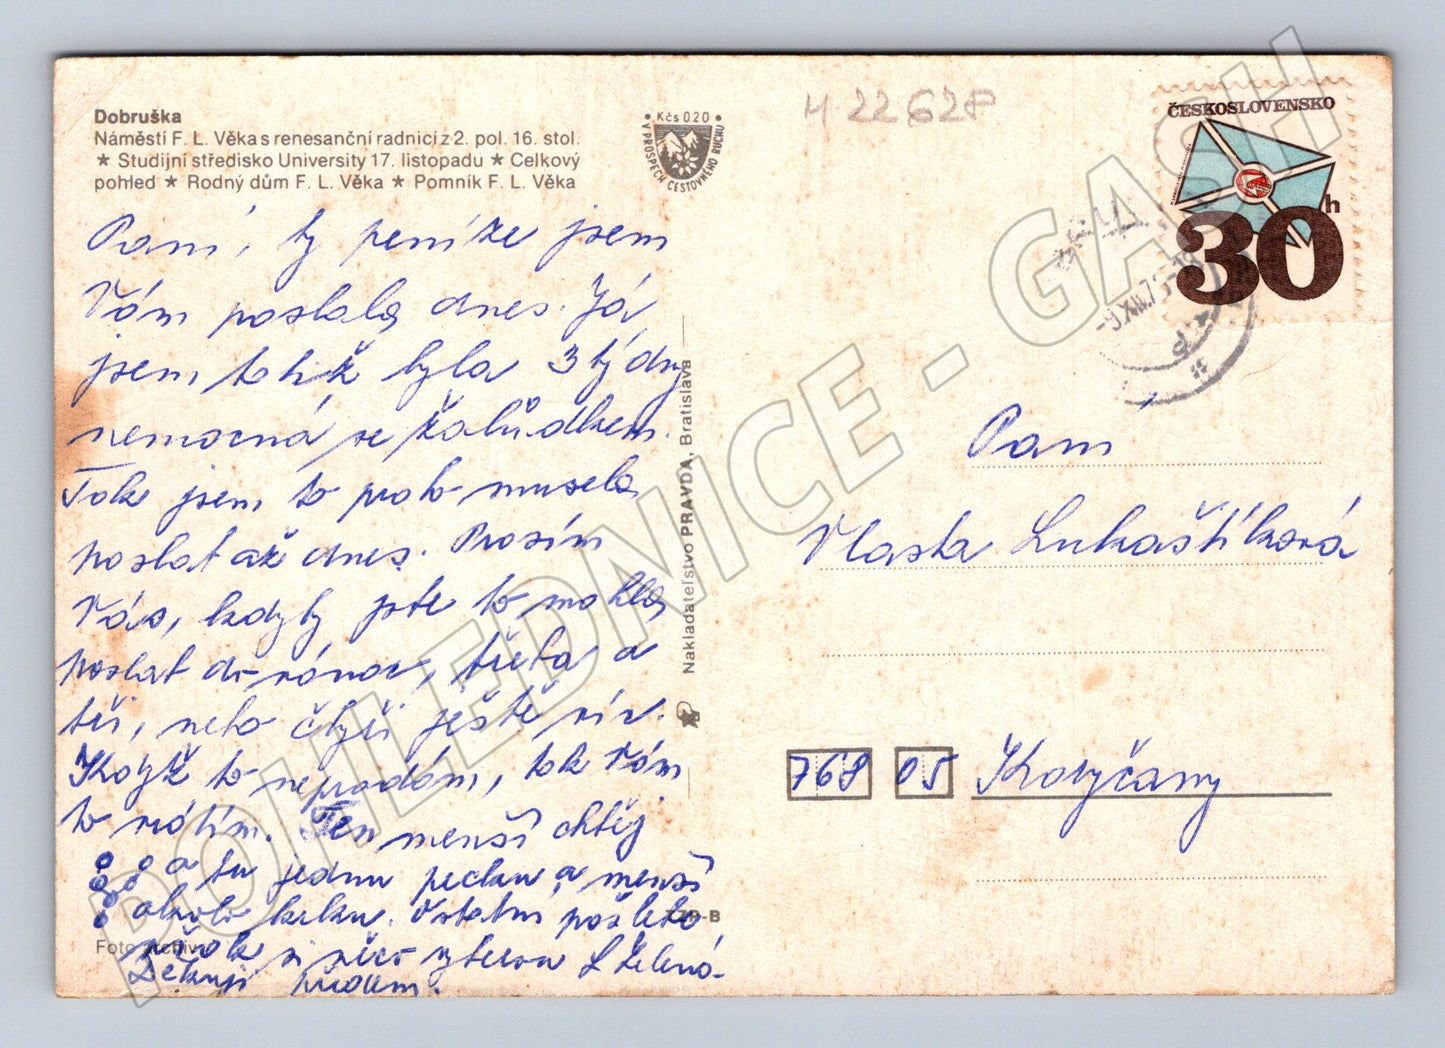 Dobruška
Náměstí F. L. Věka s renesanční radnicí z 2. pol. 16. stol.
★ Studijní středisko University 17. listopadu ★ Celkový
pohled ★ Rodný dům F. L. Věka ★ Pomník F. L. Věka
Kčs 0.20
V PROSPĚCH CESTOVNÉHO RUCHU
H 22628
ČESKOSLOVENSKO
30h
Paní, ty peníze jsem
Vám poslala dnes. Já
jsem totiž byla 3 týdny
nemocná se žalúdkem.
Tak jsem to proto musela
poslat až dnes. Prosím
Vás, kdyby jste to mohla
poslat do vánoc, třeba a
tři, nebo čtyři ještě víc.
Když to neprodám, tak Vám
to vrátím. Ten menší chtěj
a tu jednu pecku a menší
okolo krku. Ostatní pošlete
Děkuji předem.
L Zelená
Foto archiv
Nakladatelstvo PRAVDA, Bratislava
Paní
Vlasta Lukaštíková
768 05 Koryčany
POHLEDNICE - GASH